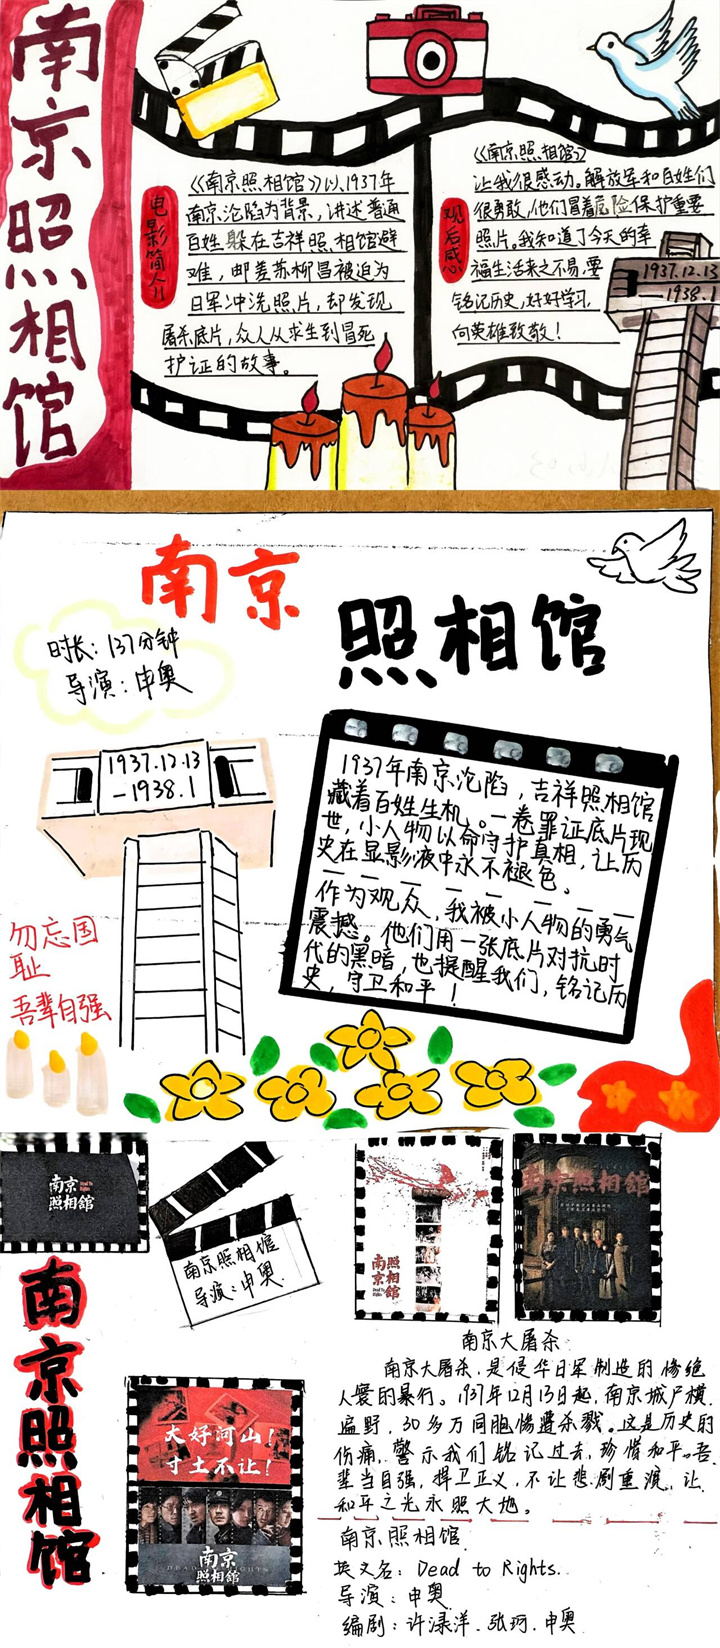 南京照相馆
电影简介
《南京照相馆》以1937年
南京沦陷为背景，讲述普通
百姓躲在吉祥照相馆避
难，邮差苏柳昌被迫为
日军冲洗照片，却发现
屠杀底片，众人从求生到冒死
护证的故事。
观后感
《南京照相馆》
让我很感动。解放军和百姓们
很勇敢，他们冒着危险保护重要
照片。我知道了今天的幸
福生活来之不易，要
铭记历史，好好学习，
向英雄致敬！
1937.12.13
—1938.1
南京
照相馆
时长：137分钟
导演：申奥
1937.12.13
—1938.1
1937年南京沦陷，吉祥照相馆
藏着百姓生机。一卷罪证底片现
世，小人物以命守护真相，让历
史在显影液中永不褪色。
作为观众，我被小人物的勇气
震撼。他们用一张底片对抗时
代的黑暗，也提醒我们，铭记历
史，守卫和平！
勿忘国
耻
吾辈自强
南京
照相馆
Dead To Rights
南京照相馆
导演：申奥
南京照相馆
南京照相馆
南京照相馆
大好河山！
寸土不让！
南京
照相馆
DEAD TO RIGHTS
南京大屠杀
南京大屠杀，是侵华日军制造的惨绝
人寰的暴行。1937年12月13日起，南京城尸横
遍野，30多万同胞惨遭杀戮。这是历史的
伤痛，警示我们铭记过去，珍惜和平。吾
辈当自强，捍卫正义，不让悲剧重演，让
和平之光永照大地。
南京照相馆
英文名：Dead to Rights.
导演：申奥
编剧：许渌洋、张珂、申奥